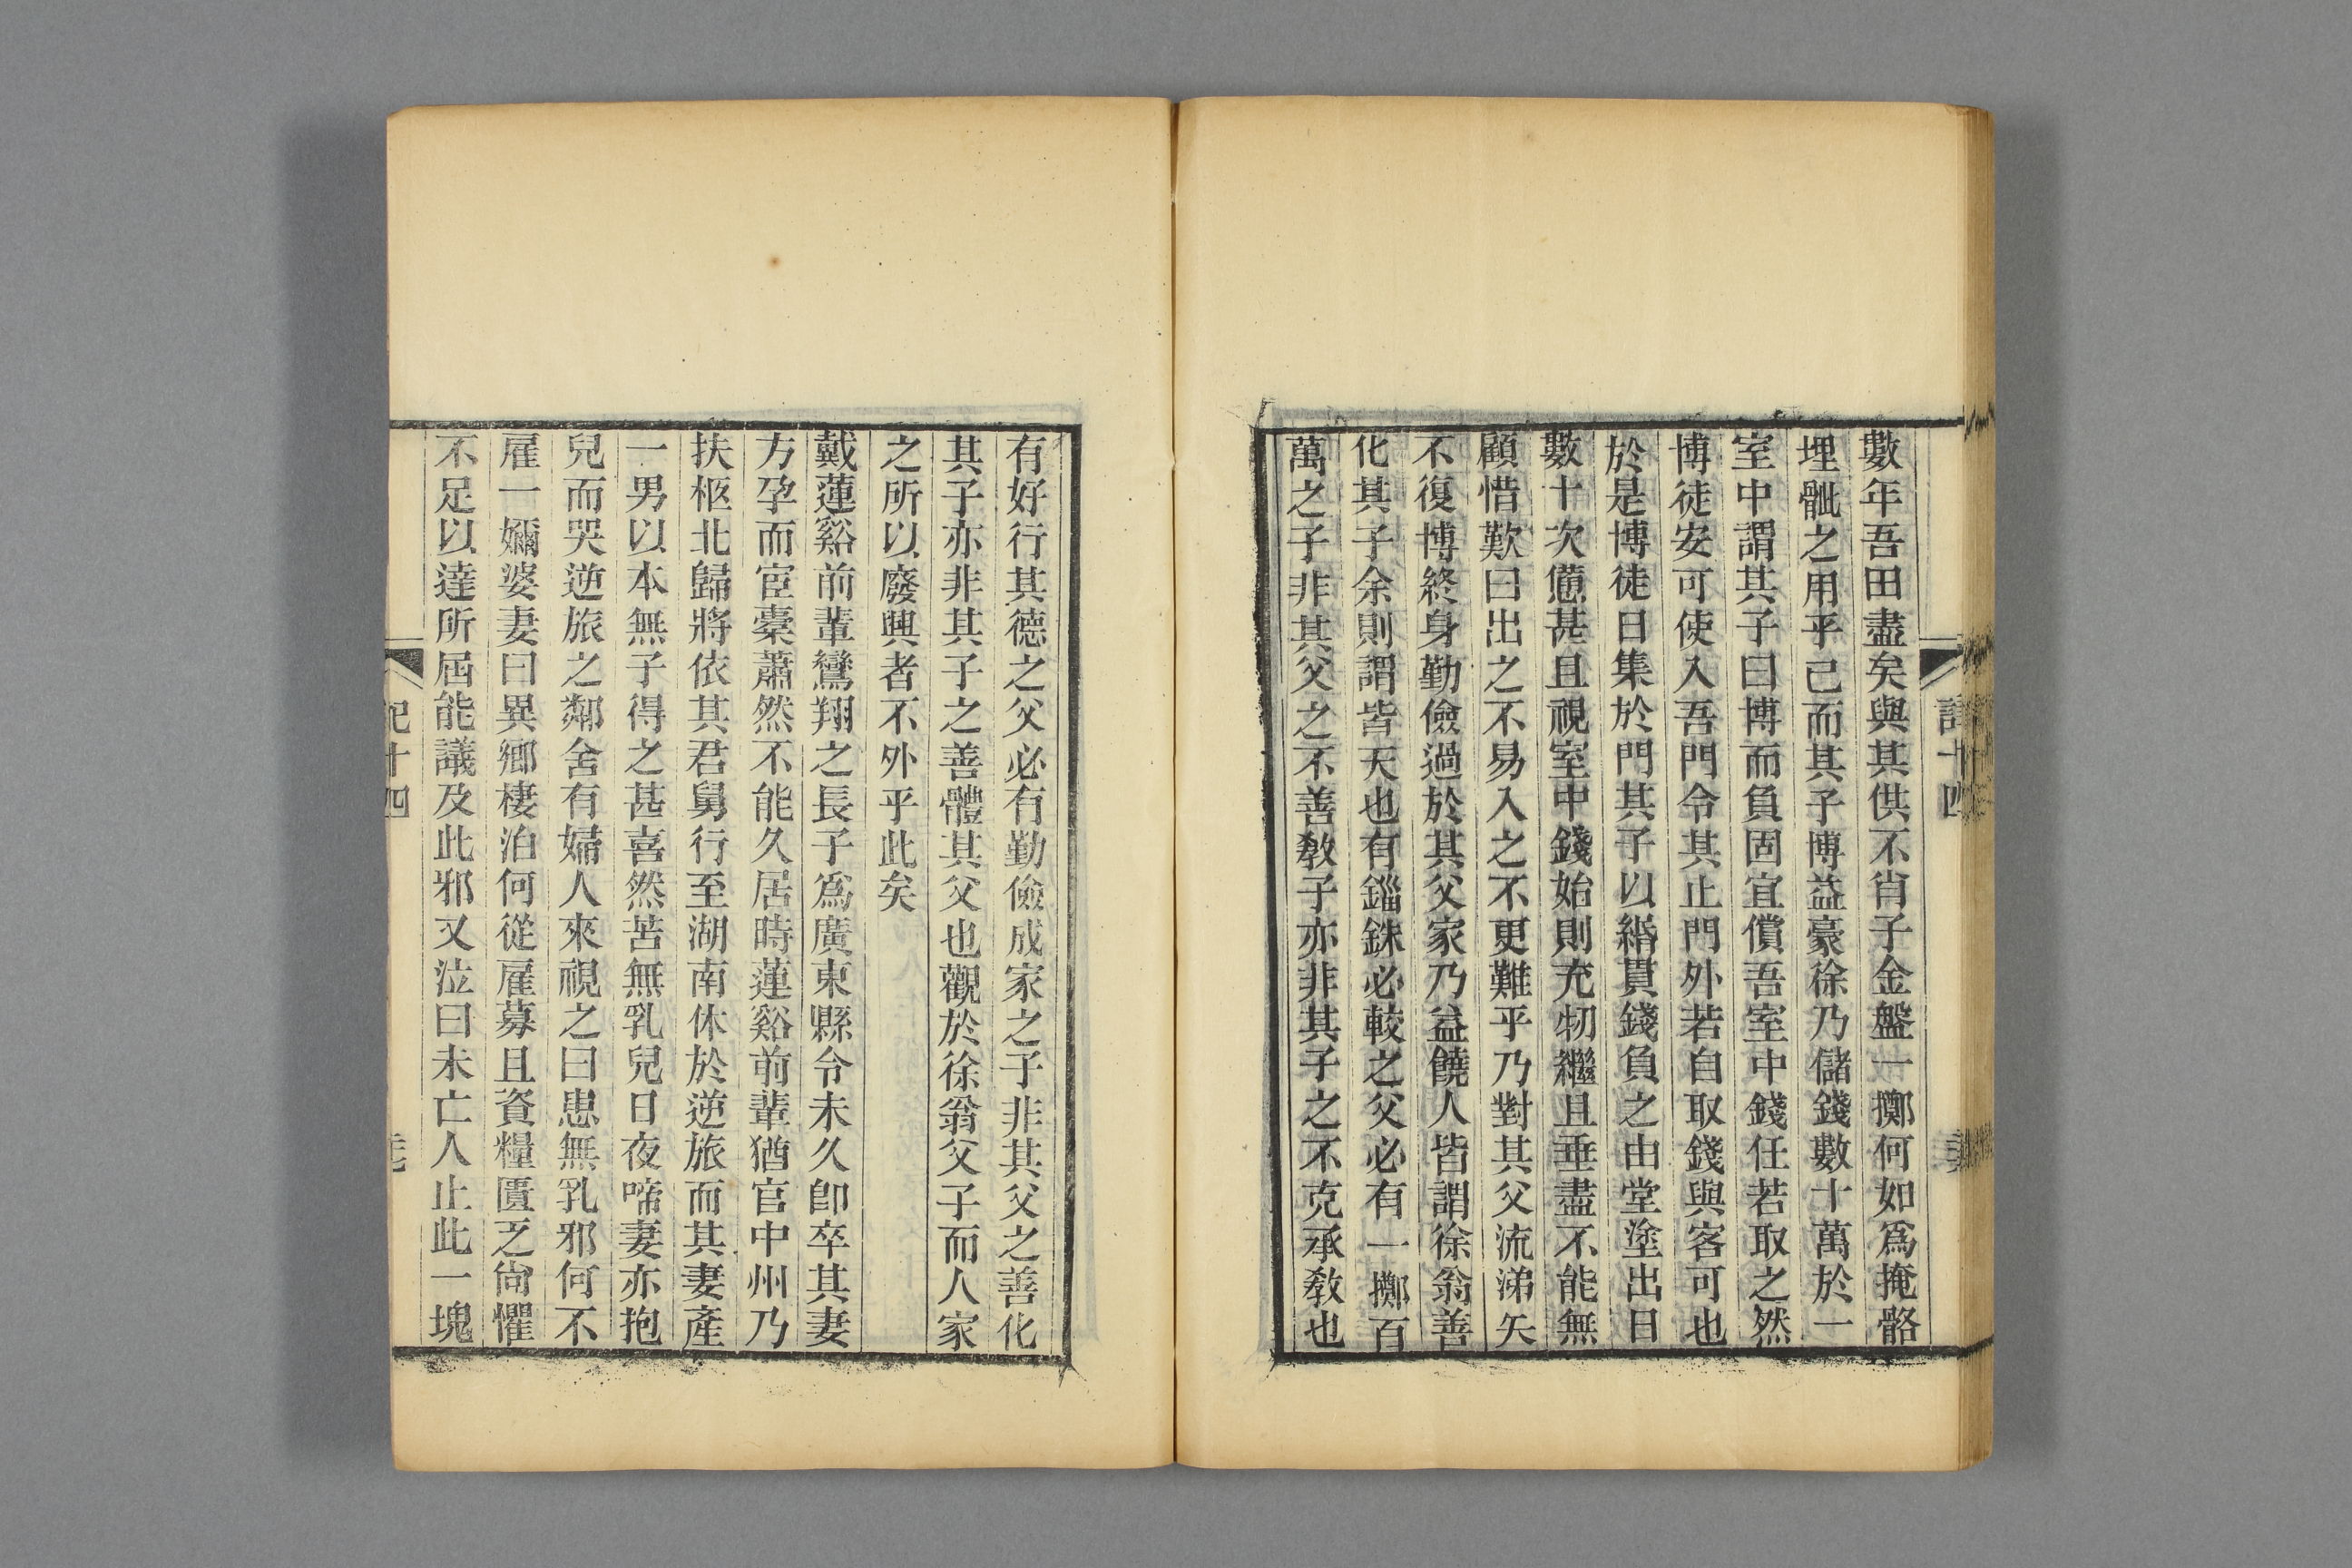 數年吾田盡矣與其供不肖子金盤一擲何如爲掩骼
埋骴之用乎已而其子博益豪徐乃儲錢數十萬於一
室中謂其子曰博而負固宜償吾室中錢任若取之然
博徒安可使入吾門令其止門外若自取錢與客可也
於是博徒日集於門其子以緡貫錢負之由堂塗出日
數十次憊甚且視室中錢始則充牣繼且垂盡不能無
顧惜歎曰出之不易入之不更難乎乃對其父流涕矢
不復博終身勤儉過於其父家乃益饒人皆謂徐翁善
化其子余則謂皆天也有錙銖必較之父必有一擲百
萬之子非其父之不善敎子亦非其子之不克承敎也
十四
有好行其德之父必有勤儉成家之子非其父之善化
其子亦非其子之善體其父也觀於徐翁父子而人家
之所以廢興者不外乎此矣
戴蓮谿前輩鸞翔之長子爲廣東縣令未久卽卒其妻
方孕而宦橐蕭然不能久居時蓮谿前輩猶官中州乃
扶柩北歸將依其君舅行至湖南休於逆旅而其妻產
一男以本無子得之甚喜然苦無乳兒日夜啼妻亦抱
兒而哭逆旅之鄰舍有婦人來視之曰患無乳邪何不
雇一嬭婆妻曰異鄉棲泊何從雇募且資糧匱乏尙懼
不足以達所屆能議及此邪又泣曰未亡人止此一塊
紀十四